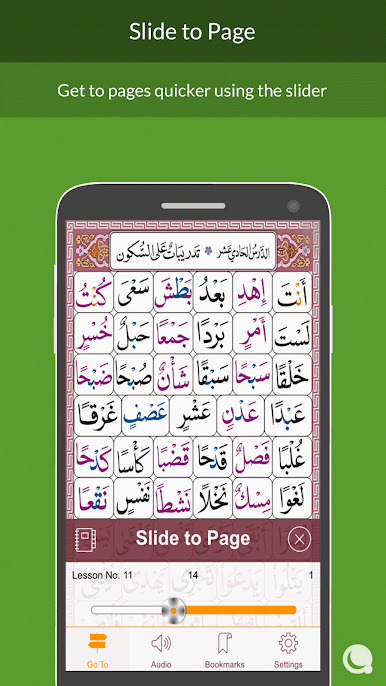 Slide to Page
Get to pages quicker using the slider
الدَّرْسُ الحَادِيْ عَشَر تَدْرِيبَاتٌ عَلَى السُّكُون
أَنْتَ إِهْدِ بَعْدُ بَطْشَ سَعَى كُنْتُ
لَسْتَ أَمْرٍ بَرْدًا جَمْعًا حَبْلٌ خُسْرٍ
خَلْقًا سَبْحًا سَبْقًا شَأْنٌ صُبْحًا ضَبْحًا
عَبْدًا عَدْنٍ عَشْرٍ عَصْفٍ غَرْقًا
غُلْبًا فَصْلٌ قَدْحًا قَضْبًا كَأْسًا كَدْحًا
لَغْوًا مِسْكٌ نَخْلًا نَشْطًا نَفْسٍ نَقْعًا
Slide to Page
Lesson No. 11 14 1
Go To Audio Bookmarks Settings